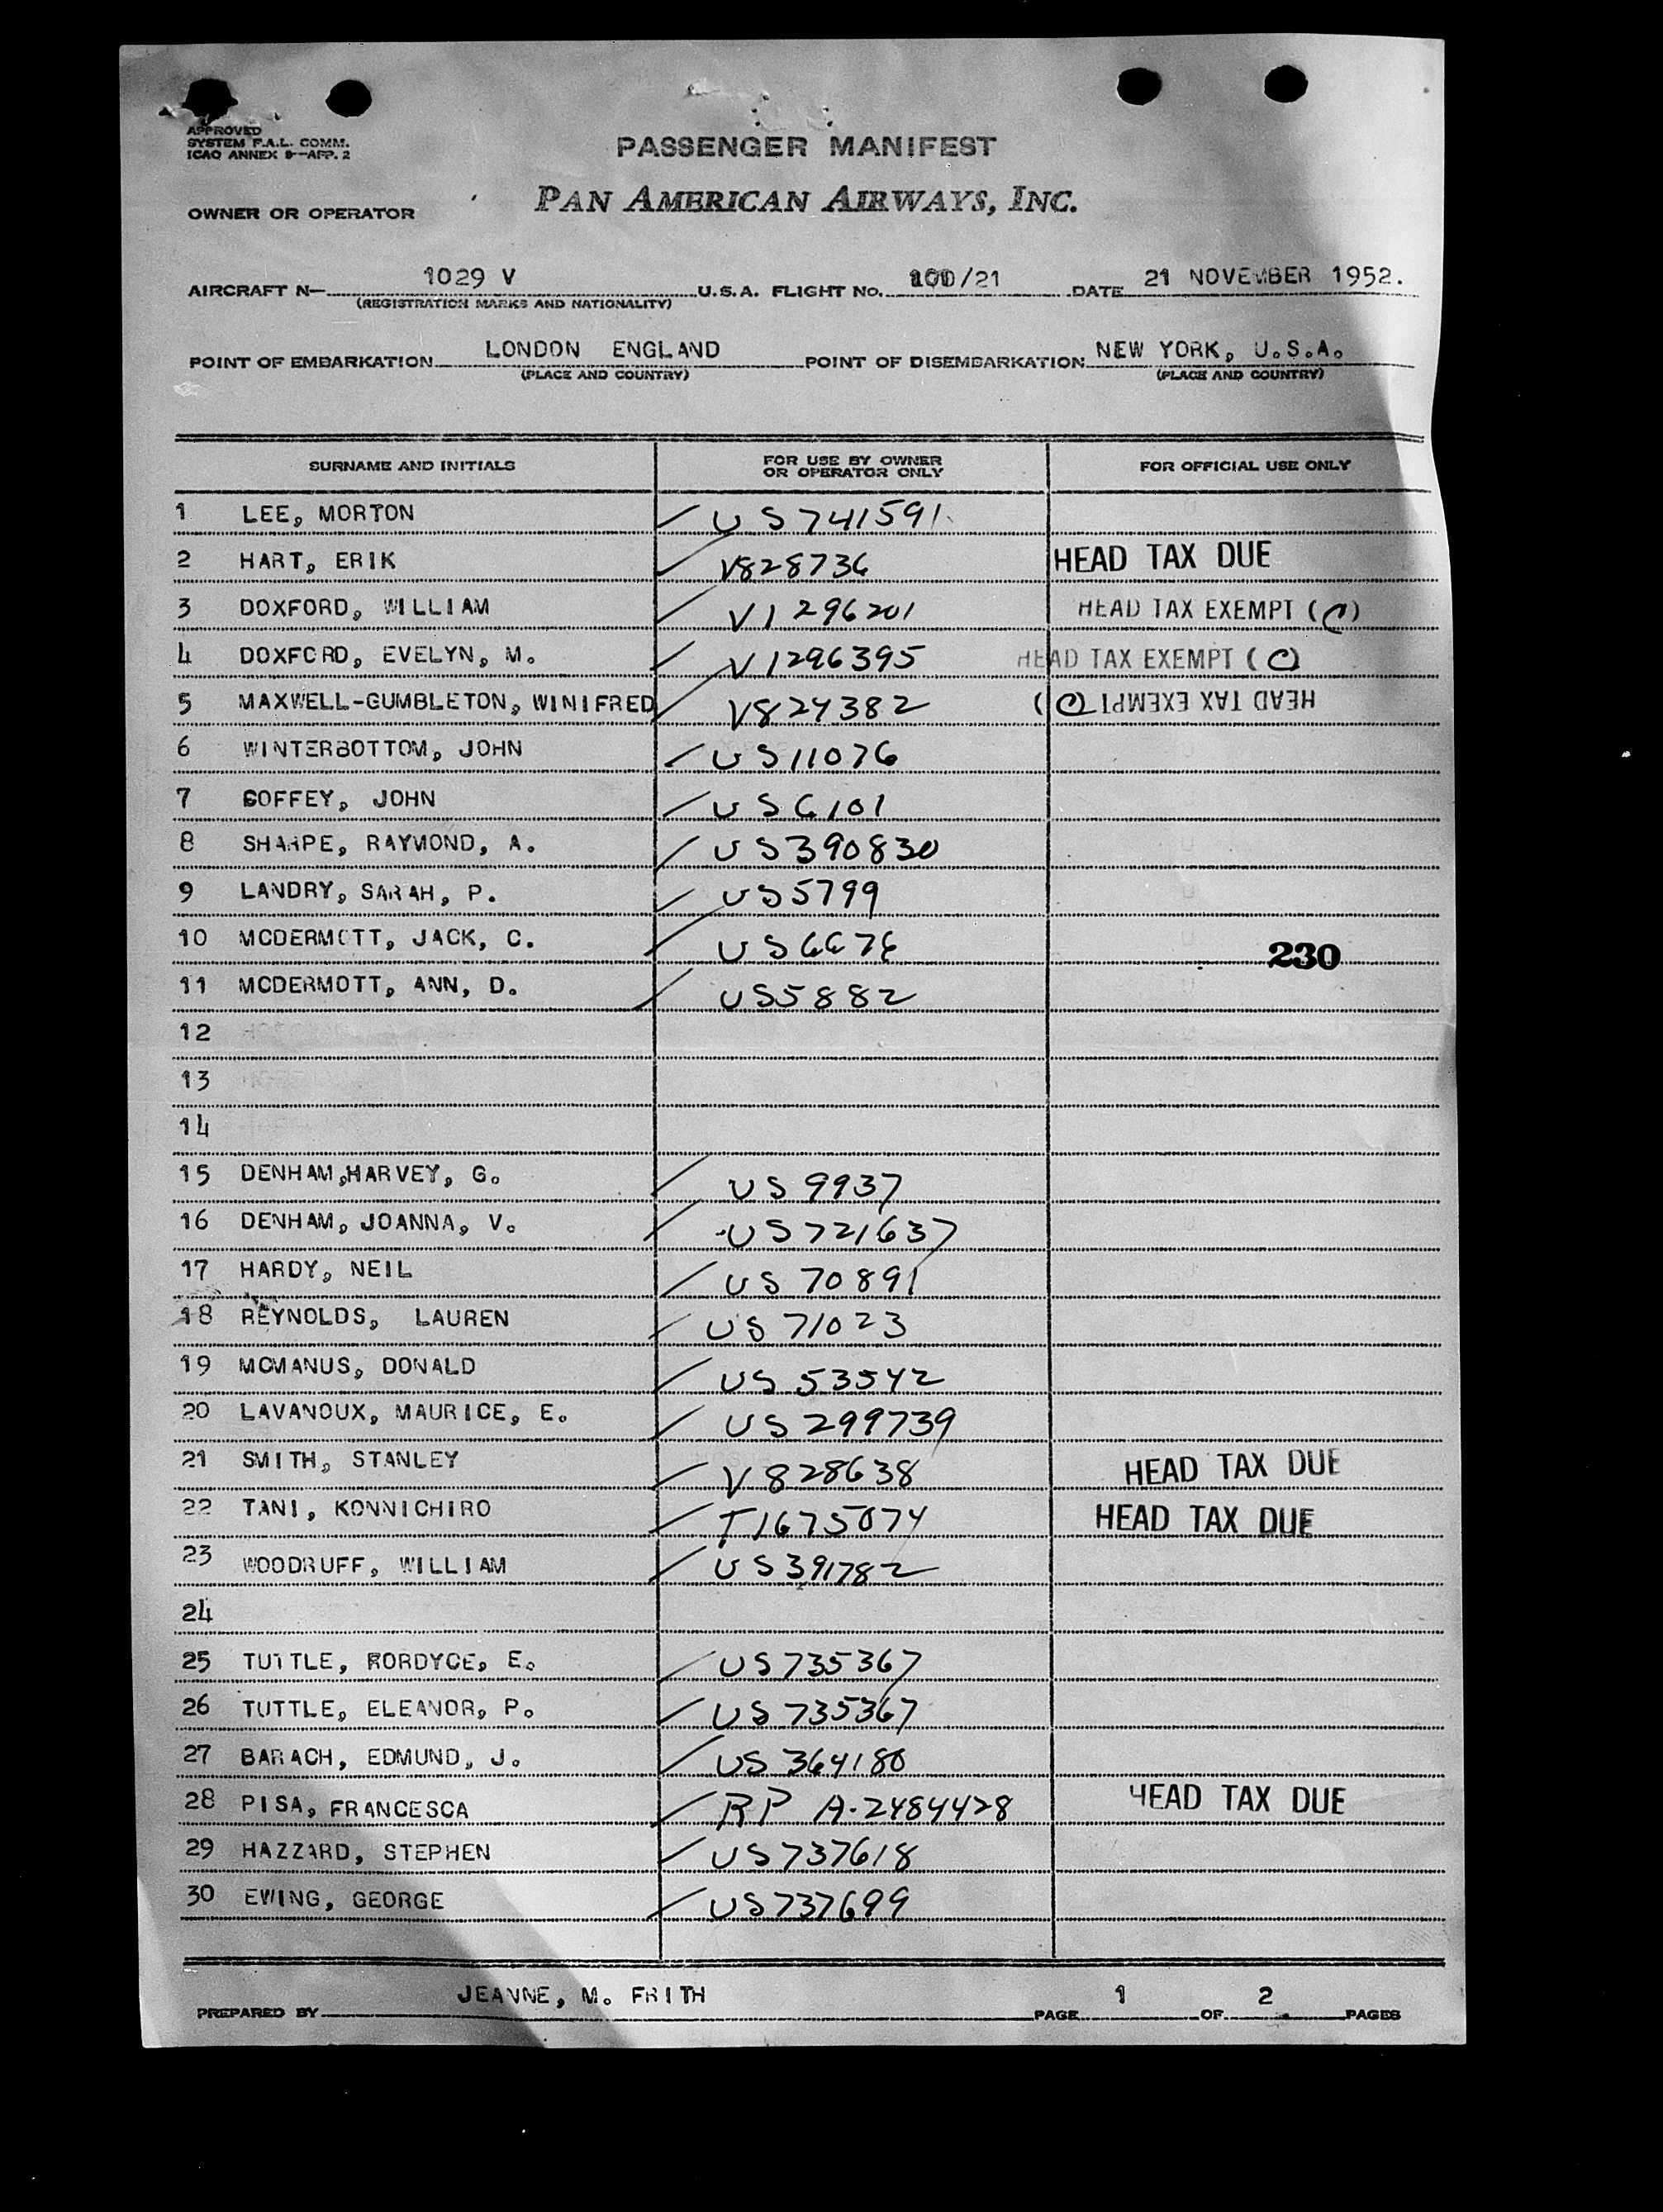 APPROVED
SYSTEM F.A.L. COMM.
ICAO ANNEX 9—APP. 2
PASSENGER MANIFEST
OWNER OR OPERATOR PAN AMERICAN AIRWAYS, INC.
AIRCRAFT N— 1029 V U.S.A. FLIGHT No. 100/21 DATE 21 NOVEMBER 1952.
(REGISTRATION MARKS AND NATIONALITY)
POINT OF EMBARKATION LONDON ENGLAND POINT OF DISEMBARKATION NEW YORK, U.S.A.
(PLACE AND COUNTRY) (PLACE AND COUNTRY)
SURNAME AND INITIALS FOR USE BY OWNER OR OPERATOR ONLY FOR OFFICIAL USE ONLY
1 LEE, MORTON US741591
2 HART, ERIK V828736 HEAD TAX DUE
3 DOXFORD, WILLIAM V1296201 HEAD TAX EXEMPT (C)
4 DOXFORD, EVELYN, M. V1296395 HEAD TAX EXEMPT (C)
5 MAXWELL-GUMBLETON, WINIFRED V824382 HEAD TAX EXEMPT (C)
6 WINTERBOTTOM, JOHN US11076
7 GOFFEY, JOHN US6101
8 SHARPE, RAYMOND, A. US390830
9 LANDRY, SARAH, P. US5799
10 MCDERMOTT, JACK, C. US6676 230
11 MCDERMOTT, ANN, D. US5882
12
13
14
15 DENHAM,HARVEY, G. US 9937
16 DENHAM, JOANNA, V. US721637
17 HARDY, NEIL US 70891
18 REYNOLDS, LAUREN US 71023
19 MCMANUS, DONALD US 53542
20 LAVANOUX, MAURICE, E. US299739
21 SMITH, STANLEY V828638 HEAD TAX DUE
22 TANI, KONNICHIRO T1675074 HEAD TAX DUE
23 WOODRUFF, WILLIAM US391782
24
25 TUTTLE, RORDYCE, E. US735367
26 TUTTLE, ELEANOR, P. US735367
27 BARACH, EDMUND, J. US 364180
28 PISA, FRANCESCA RP A-2484428 HEAD TAX DUE
29 HAZZARD, STEPHEN US737618
30 EWING, GEORGE US737699
PREPARED BY JEANNE, M. FRITH PAGE 1 OF 2 PAGES